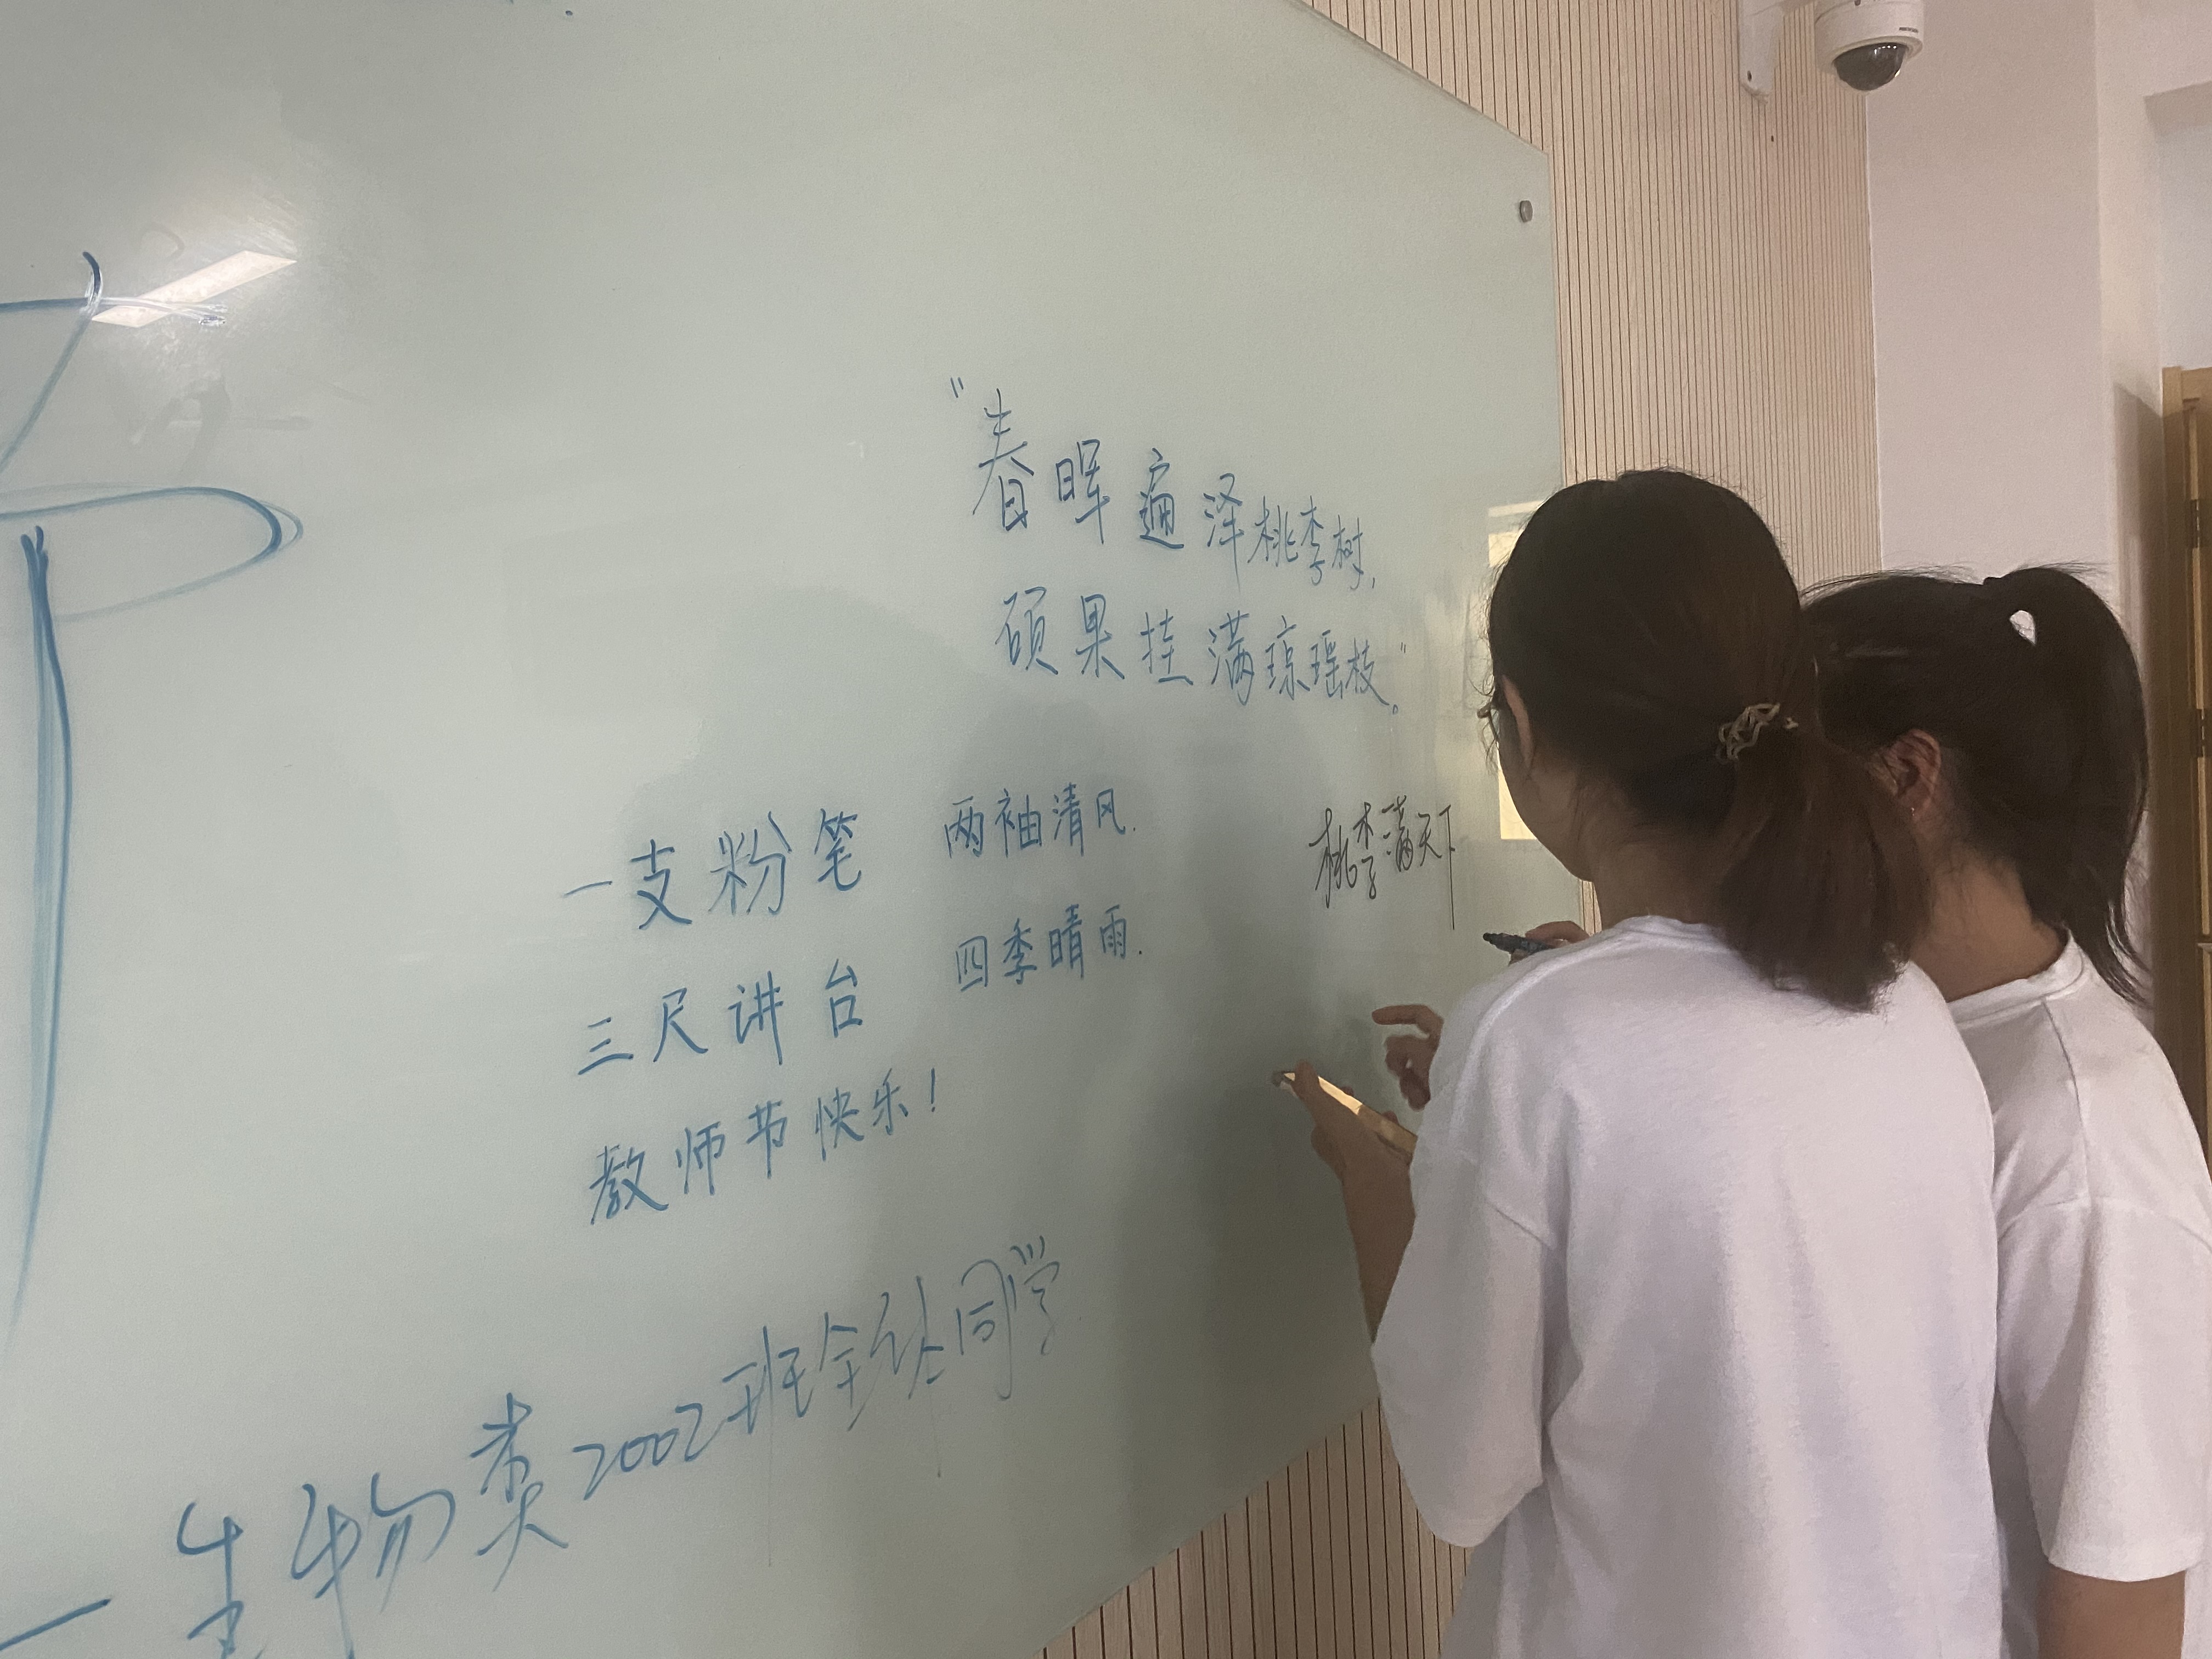 “春晖遍泽桃李树,
硕果挂满琼瑶枝。”
一支粉笔 两袖清风.
桃李满天下
三尺讲台 四季晴雨.
教师节快乐!
一生物类2002班全体同学